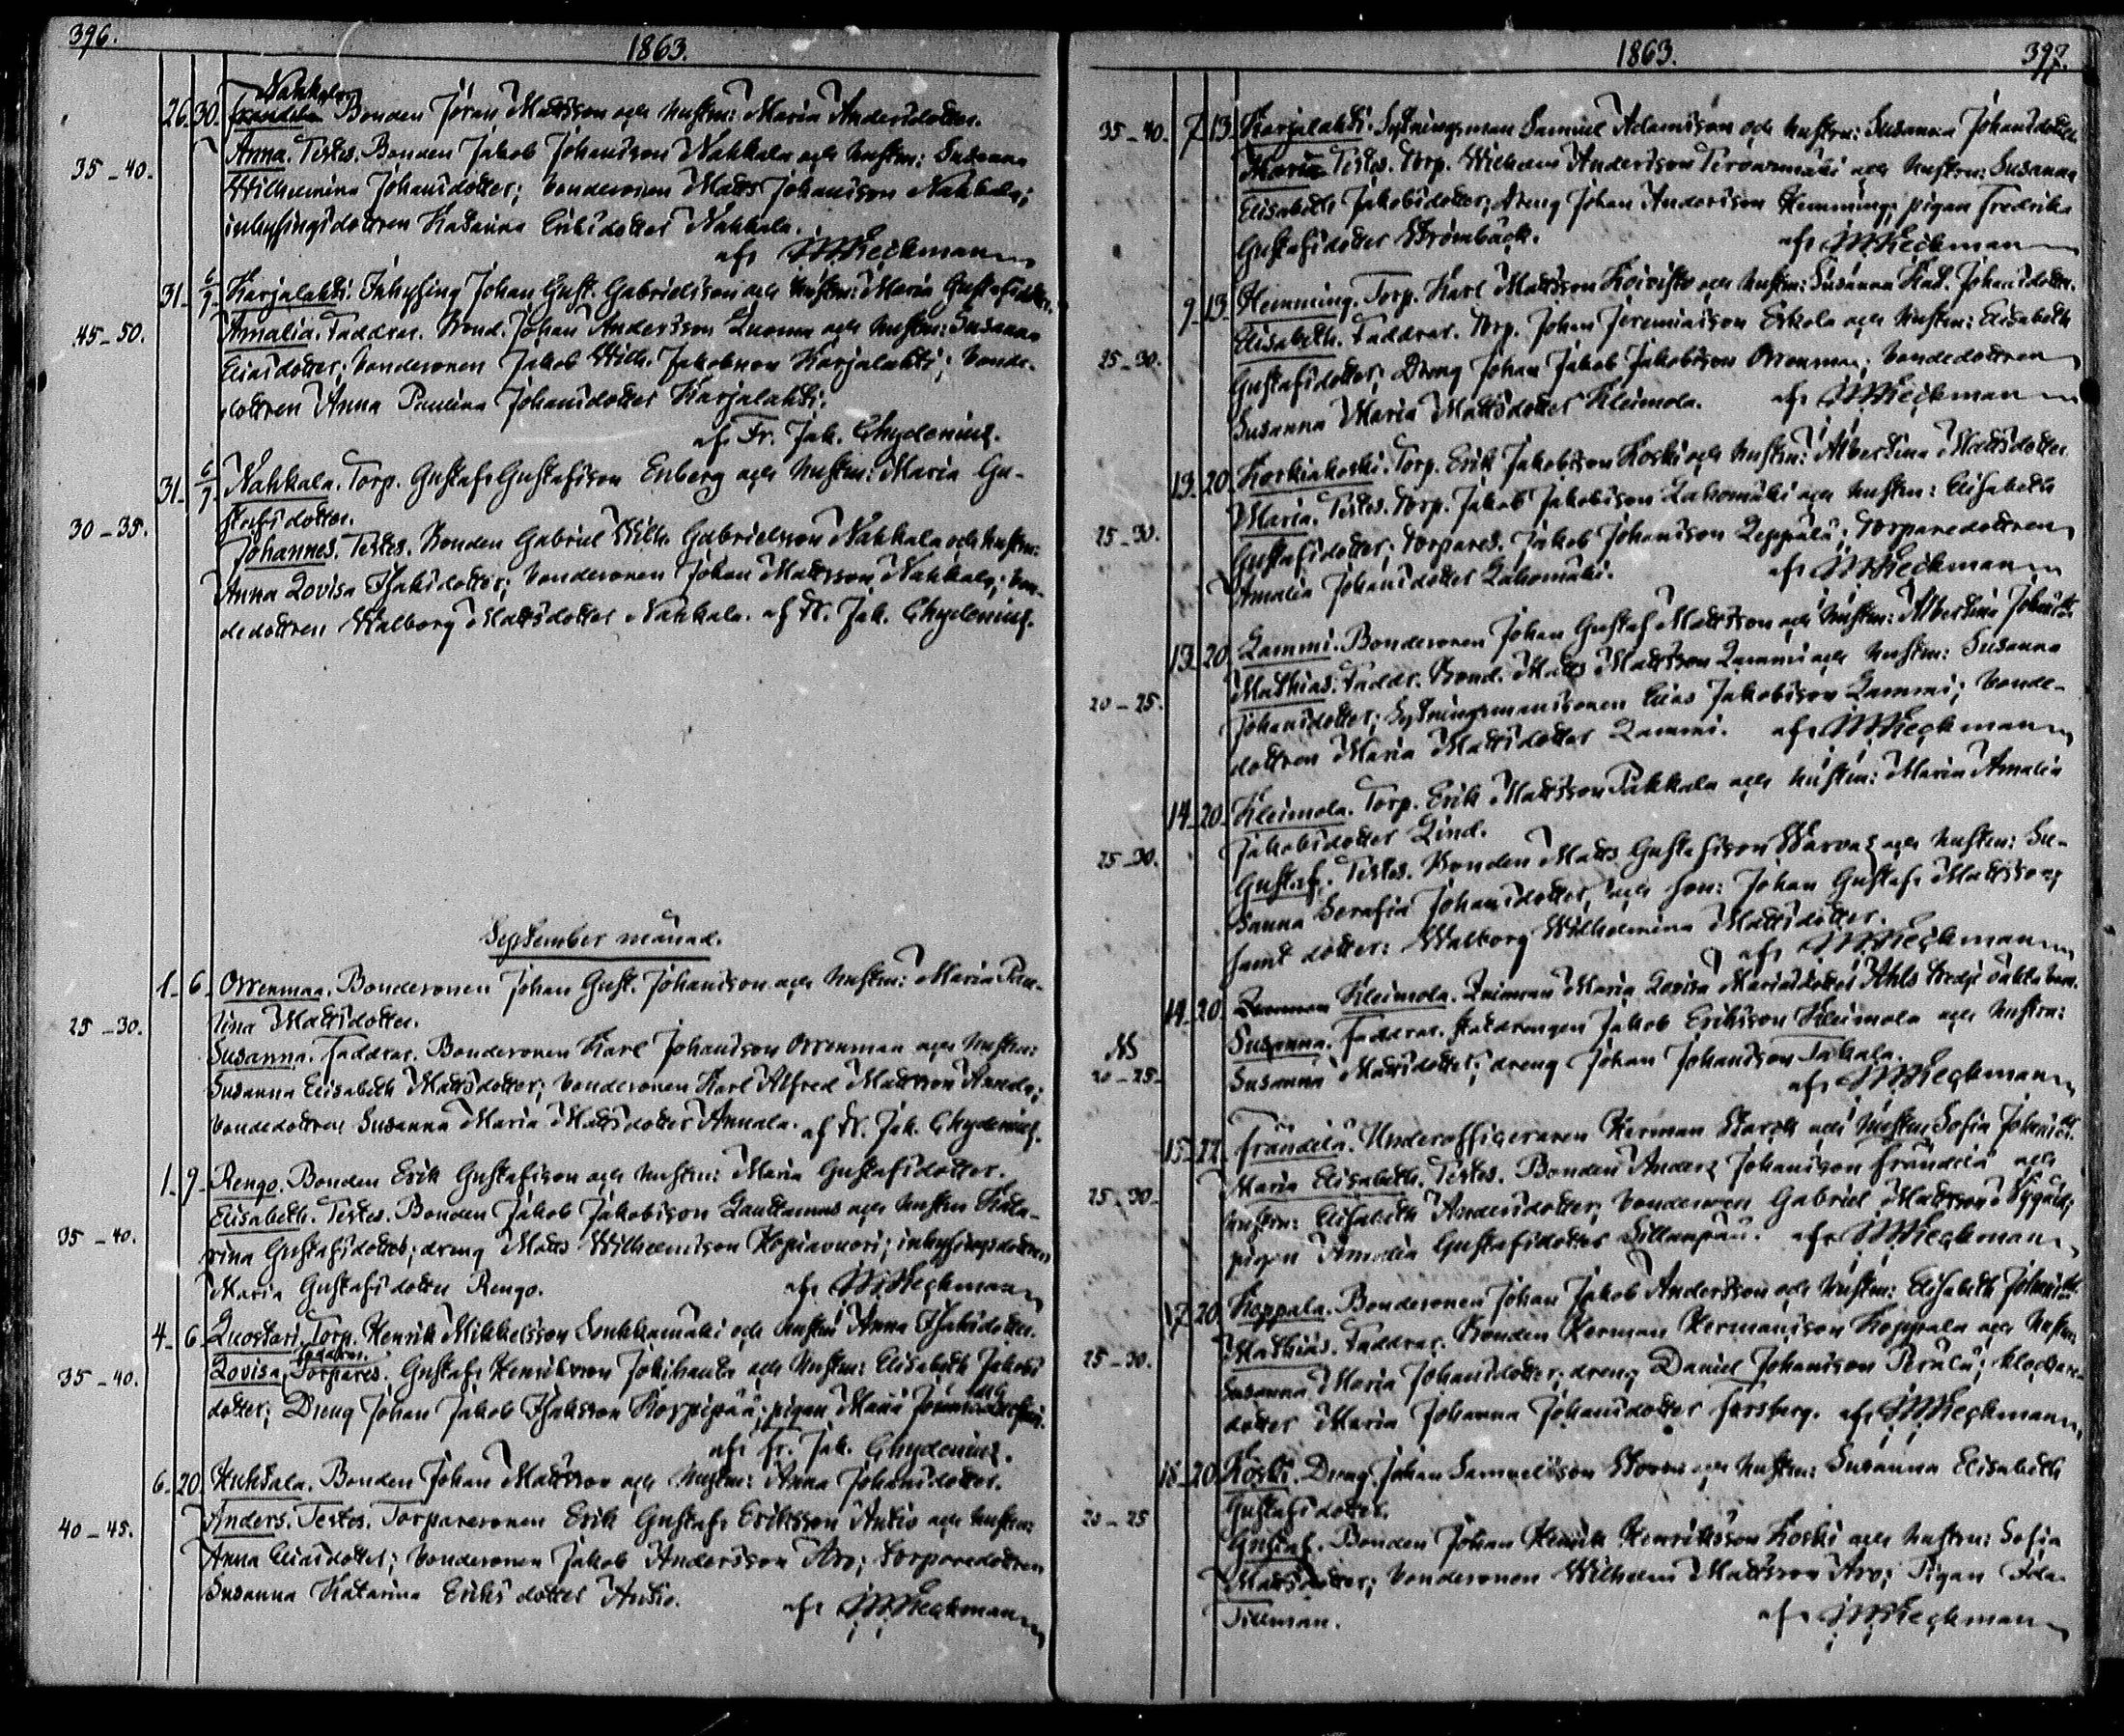 396.
1863.
Nahkala
26. 30. Frandila Bonden Jöran Mattsson och hustru: Maria Andersdotter.
Anna. Testes. Bonden Jakob Johansson Nahkala och hustru: Susanna
35-40.
Wilhelmina Johansdotter; bondesonen Matts Johansson Nahkala;
inhysingsdottren Katarina Eriksdotter Nahkala.
af M. Heckman
31. 6/9. Karjalahti. Inhysing Johan Gust. Gabrielsson och hustru: Maria Gustafsdotter.
45-50.
Amalia. Faddrar. Bond. Johan Andersson Luoma och hustru: Susanna
Eliasdotter; bondesonen Jakob Wilh. Jakobsson Karjalahti; bonde-
dottren Anna Paulina Johansdotter Karjalahti.
af Fr. Jak. Chydenius.
31. 6/9. Nahkala. Torp. Gustaf Gustafsson Enberg och hustru: Maria Gu-
stafsdotter.
30-35.
Johannes. Testes. Bonden Gabriel Wilh. Gabrielsson Nahkala och hustru:
Anna Lovisa Isaksdotter; bondesonen Johan Mattsson Nahkala; bon-
dedottren Walborg Mattsdotter Nahkala. af Fr. Jak. Chydenius.
September månad.
1. 6. Orrenmaa. Bondesonen Johan Gust. Johansson och hustru: Maria Pau-
lina Mattsdotter.
25-30.
Susanna. Faddrar. Bondesonen Karl Johansson Orrenmaa och hustru:
Susanna Elisabeth Mattsdotter; bondesonen Karl Alfred Mattsson Annala;
bondedottren Susanna Maria Mattsdotter Annala. af Fr. Jak. Chydenius.
1. 9. Rengo. Bonden Erik Gustafsson och hustru: Maria Gustafsdotter.
Elisabeth. Testes. Bonden Jakob Jakobsson Lauttamus och hustru Kata-
35-40.
rina Gustafsdotter; dreng Matts Wilhelmsson Kopiavuori; inhysingsdottren
Maria Gustafsdotter Rengo. af M. Heckman
4. 6. Luostari. Torp. Henrik Mikkelsson Loukkamäki och hustru Anna Isaksdotter.
Faddrar.
Lovisa. Torpares. Gustaf Henriksson Jokihanta och hustru: Elisabeth Jakobs
35-40.
dotter; Dreng Johan Jakob Isaksson Korpipää; pigan Maria
af Fr. Jak. Chydenius.
6. 20. Huhtala. Bonden Johan Mattsson och hustru: Anna Johansdotter.
Anders. Testes. Torparesonen Erik Gustaf Eriksson Autio och hustru:
40-45.
Anna Eliasdotter; bondesonen Jakob Andersson Aro; torparedottren
Susanna Katarina Eriksdotter Autio. af M. Heckman
1863.
397.
35-40. 7. 13. Karjalahti. Sytningsman Samuel Adamsson och hustru: Susanna Johansdotter
Maria. Testes. Torp. Wilhelm Andersson Tervasmäki och hustru: Susanna
Elisabeth Jakobsdotter; dreng Johan Andersson Hemming; pigan Fredrika
Gustafsdotter Strömbäck. af M. Heckman
9. 13. Hemming. Torp. Karl Mattsson Koivisto och hustru: Susanna Kat. Johansdotter.
Elisabeth. Faddrar. Torp. Johan Jeremiasson Eskola och hustru: Elisabeth
25-30.
Gustafsdotter; Dreng Johan Jakob Jakobsson Orrenmaa; bondedottren
Susanna Maria Mattsdotter Kleimola. af M. Heckman
13. 20. Korkiakoski. Torp. Erik Jakobsson Koski och hustru: Albertina Mattsdotter
Maria. Testes. Torp. Jakob Jakobsson Lahomäki och hustru: Elisabeth
25-30.
Gustafsdotter; torpares. Jakob Johansson Leppälä; torparedottren
Amalia Johansdotter Lahomäki. af M. Heckman
13. 20. Lammi. Bondesonen Johan Gustaf Mattsson och hustru: Albertina Johansdr
Mathias. Faddr. Bond. Matts Mattsson Lammi och hustru: Susanna
20-25.
Johansdotter; Sytningsmanssonen Elias Jakobsson Lammi; bonde-
dottren Maria Mattsdotter Lammi. af M. Heckman
14. 20. Kleimola. Torp. Erik Mattsson Pahkala och hustru: Maria Amalia
Jakobsdotter Lind.
25-30.
Gustaf. Testes. Bonden Matts Gustafsson Warvas och hustru: Su-
sanna Serafia Johansdotter, och son: Johan Gustaf Mattsson,
samt dotter: Walborg Wilhelmina Mattsdotter.
af M. Heckman
14. 20. Kleimola. Qvinnan Maria Lovisa Mariasdotter Ahls tredje oäkta barn.
Susanna. Faddrar. Statdrengen Jakob Eriksson Kleimola och hustru:
20-25.
Susanna Mattsdotter; dreng Johan Johansson Takala.
af M. Heckman
15. 27. Frändilä. Underofficeraren Herman Starck och hustru Sofia Johansdr.
Maria Elisabeth. Testes. Bonden Anders Johansson Frändilä och
25-30.
hustru: Elisabeth Andersdotter; bondesonen Gabriel Mattsson
pigan Amalia Gustafsdotter Sillanpää. af M. Heckman
17. 20. Koppala. Bondesonen Johan Jakob Andersson och hustru: Elisabeth Johansdr
Mathias. Faddrar. Bonden Herman Hermansson Koppala och hustru
25-30.
Susanna Maria Johansdotter; dreng Daniel Johansson Perälä; klockare-
dotter Maria Johanna Johansdotter Forsberg. af M. Heckman
18. 20. Koski. Dreng Johan Samuelsson och hustru: Susanna Elisabeth
Gustafsdotter.
20-25
Gustaf. Bonden Johan Henrik Henriksson Koski och hustru: Sofia
Mattsdotter; bondesonen Wilhelm Mattsson Aro; Pigan Ida
Tillman. af M. Heckman